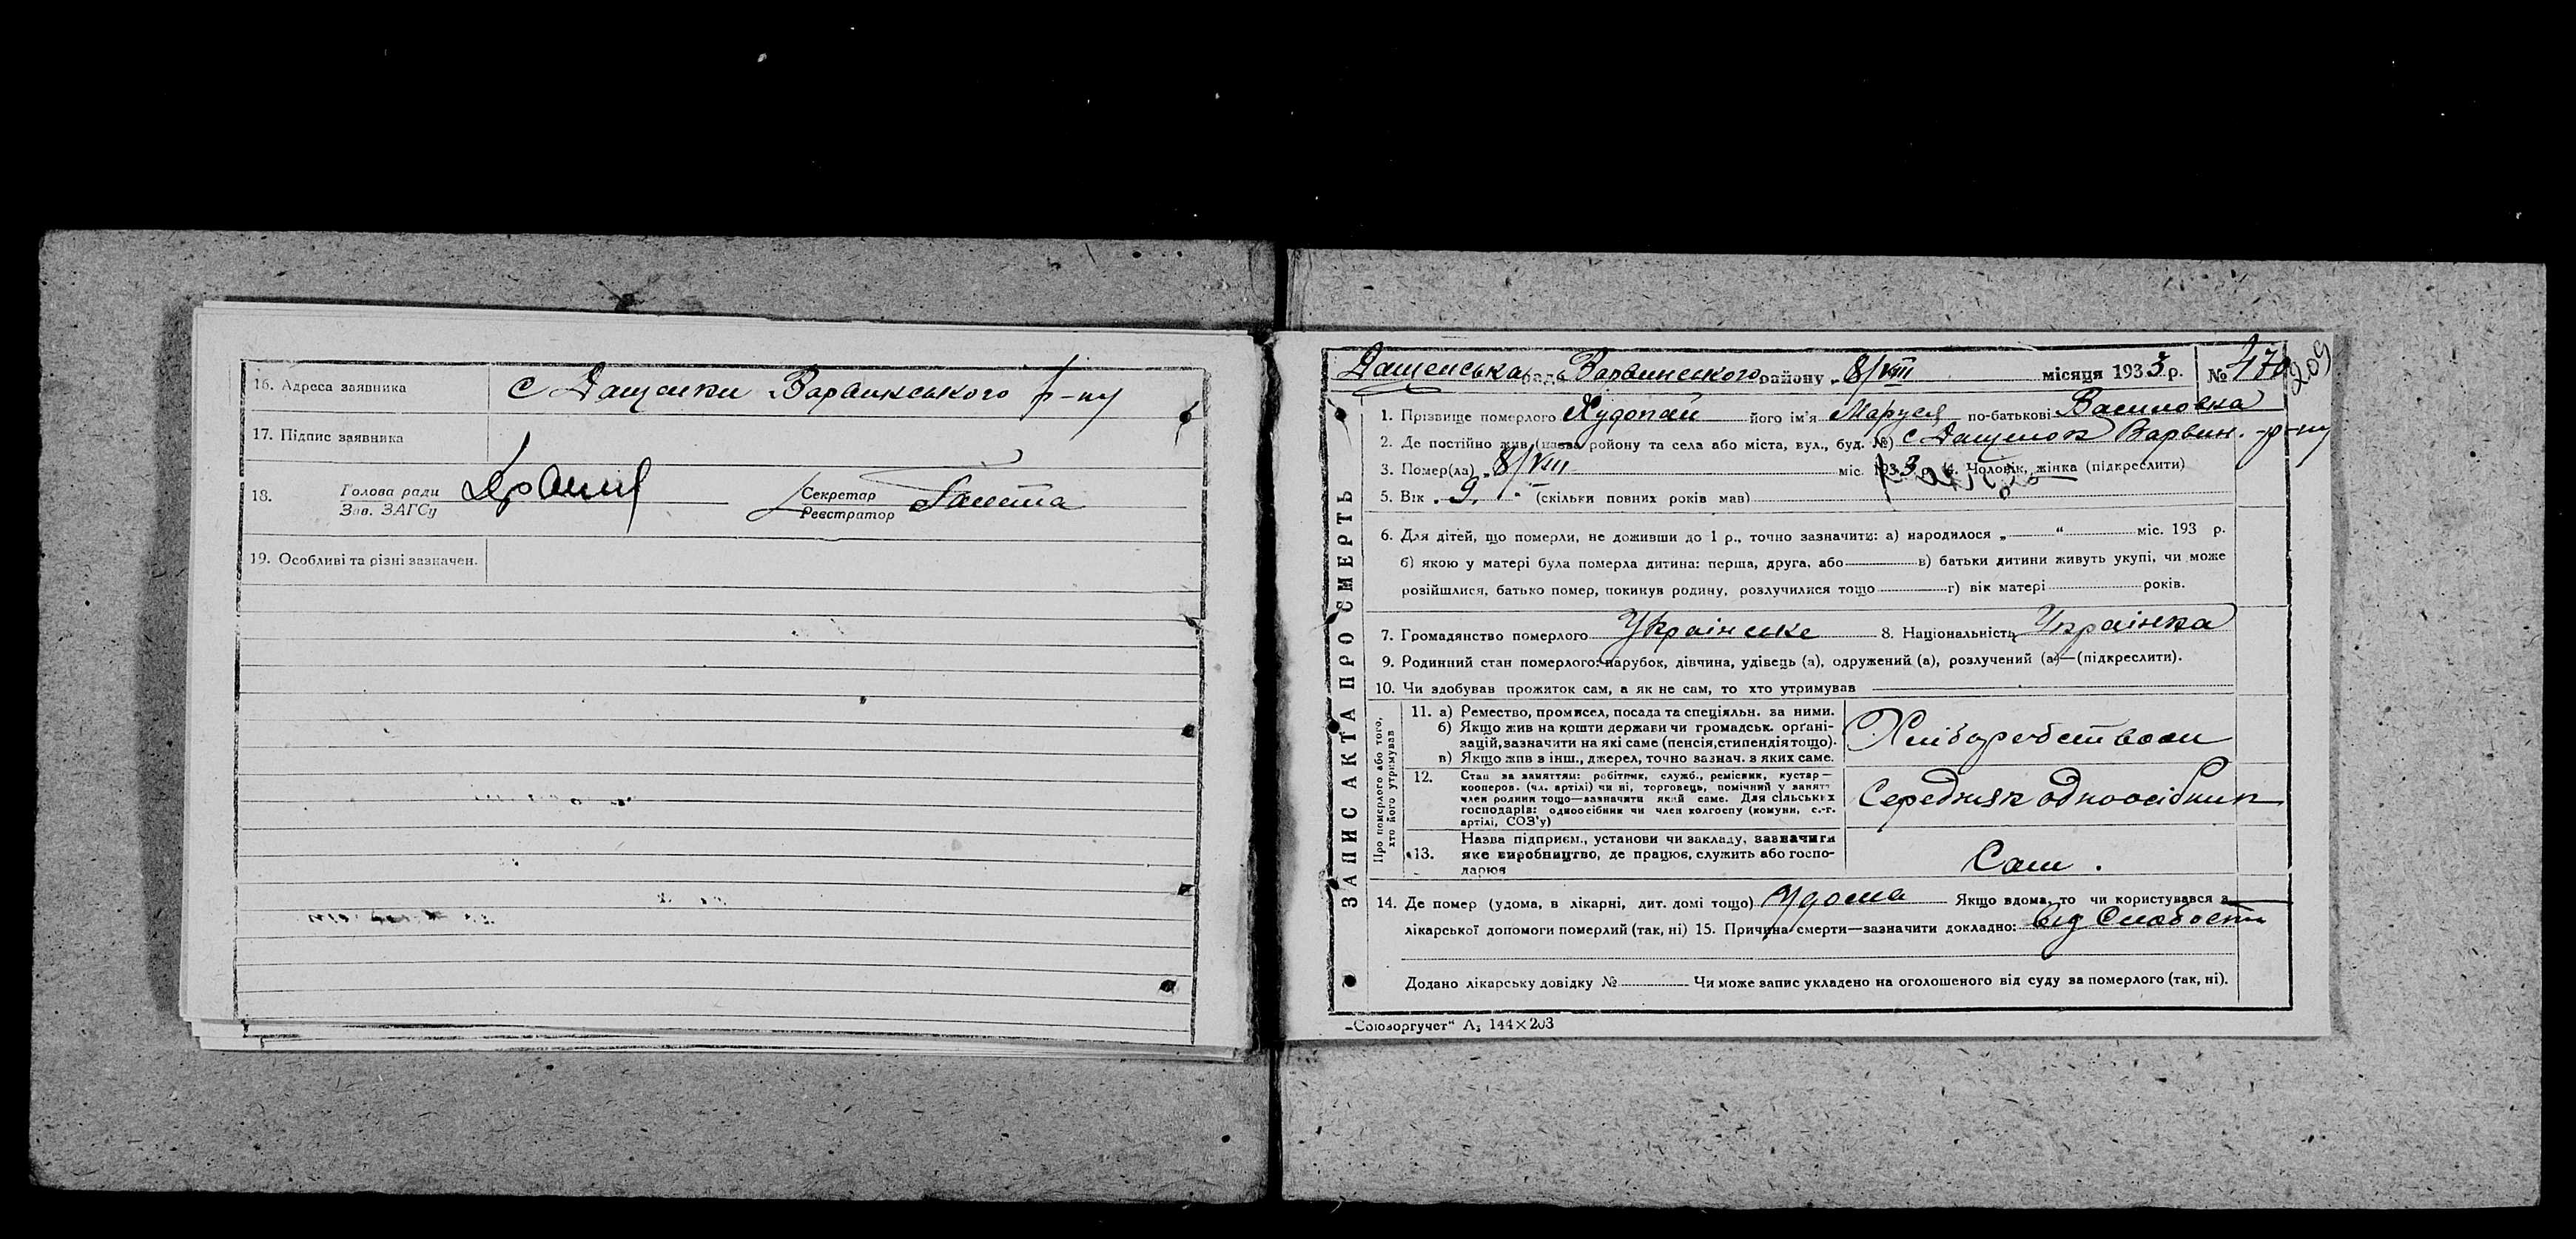 16. Адреса заявника с Дащенки Варвинського р-ну
17. Підпис заявника
18. Голова ради
Зав. ЗАГСу
Секретар
Реєстратор
19. Особливі та різні зазначен.
ЗАПИС АКТА ПРО СМЕРТЬ
Дащенська рада Варвинського району „8/VIII місяця 1933 р. № 470
209
1. Прізвище померлого Худопай його ім'я Маруся по-батькові Василовна
2. Де постійно жив (назва району та села або міста, вул., буд. №) с Дащенок Варвин. р-ну
3. Помер(ла) „8/VIII міс. 1933 р. 4. Чоловік, жінка (підкреслити)
5. Вік 9. (скільки повних років мав)
6. Для дітей, що померли, не доживши до 1 р., точно зазначити: а) народилося „ “ міс. 193 р.
б) якою у матері була померла дитина: перша, друга, або в) батьки дитини живуть укупі, чи може
розійшлися, батько помер, покинув родину, розлучилися тощо г) вік матері років.
7. Громадянство померлого Українське 8. Національність Українка
9. Родинний стан померлого: парубок, дівчина, удівець (а), одружений (а), розлучений (а)—(підкреслити).
10. Чи здобував прожиток сам, а як не сам, то хто утримував
Про померлого або того,
хто його утримував
11. а) Ремество, промисел, посада та спеціяльн. за ними.
б) Якщо жив на кошти держави чи громадськ. орґані-
зацій, зазначити на які саме (пенсія, стипендія тощо).
в) Якщо жив з інш., джерел, точно зазнач. з яких саме.
Хліборобством
12. Стан за заняттям: робітник, служб., ремісник, кустар—
кооперов. (чл. артілі) чи ні, торговець, помічний у занятт
член родини тощо—зазначити який саме. Для сільських
господарів: одноосібник чи член колгоспу (комуни, с.-г.
артілі, СОЗ'у)
Середняк одноосібник
13. Назва підприєм., установи чи закладу, зазначити
яке виробництво, де працює, служить або госпо-
дарює
Сам.
14. Де помер (удома, в лікарні, дит. домі тощо) Удома Якщо вдома, то чи користувався з
лікарської допомоги померлий (так, ні) 15. Причина смерти—зазначити докладно: від Слабости
Додано лікарську довідку № Чи може запис укладено на оголошеного від суду за померлого (так, ні).
„Союзоргучет“ А5 144×203